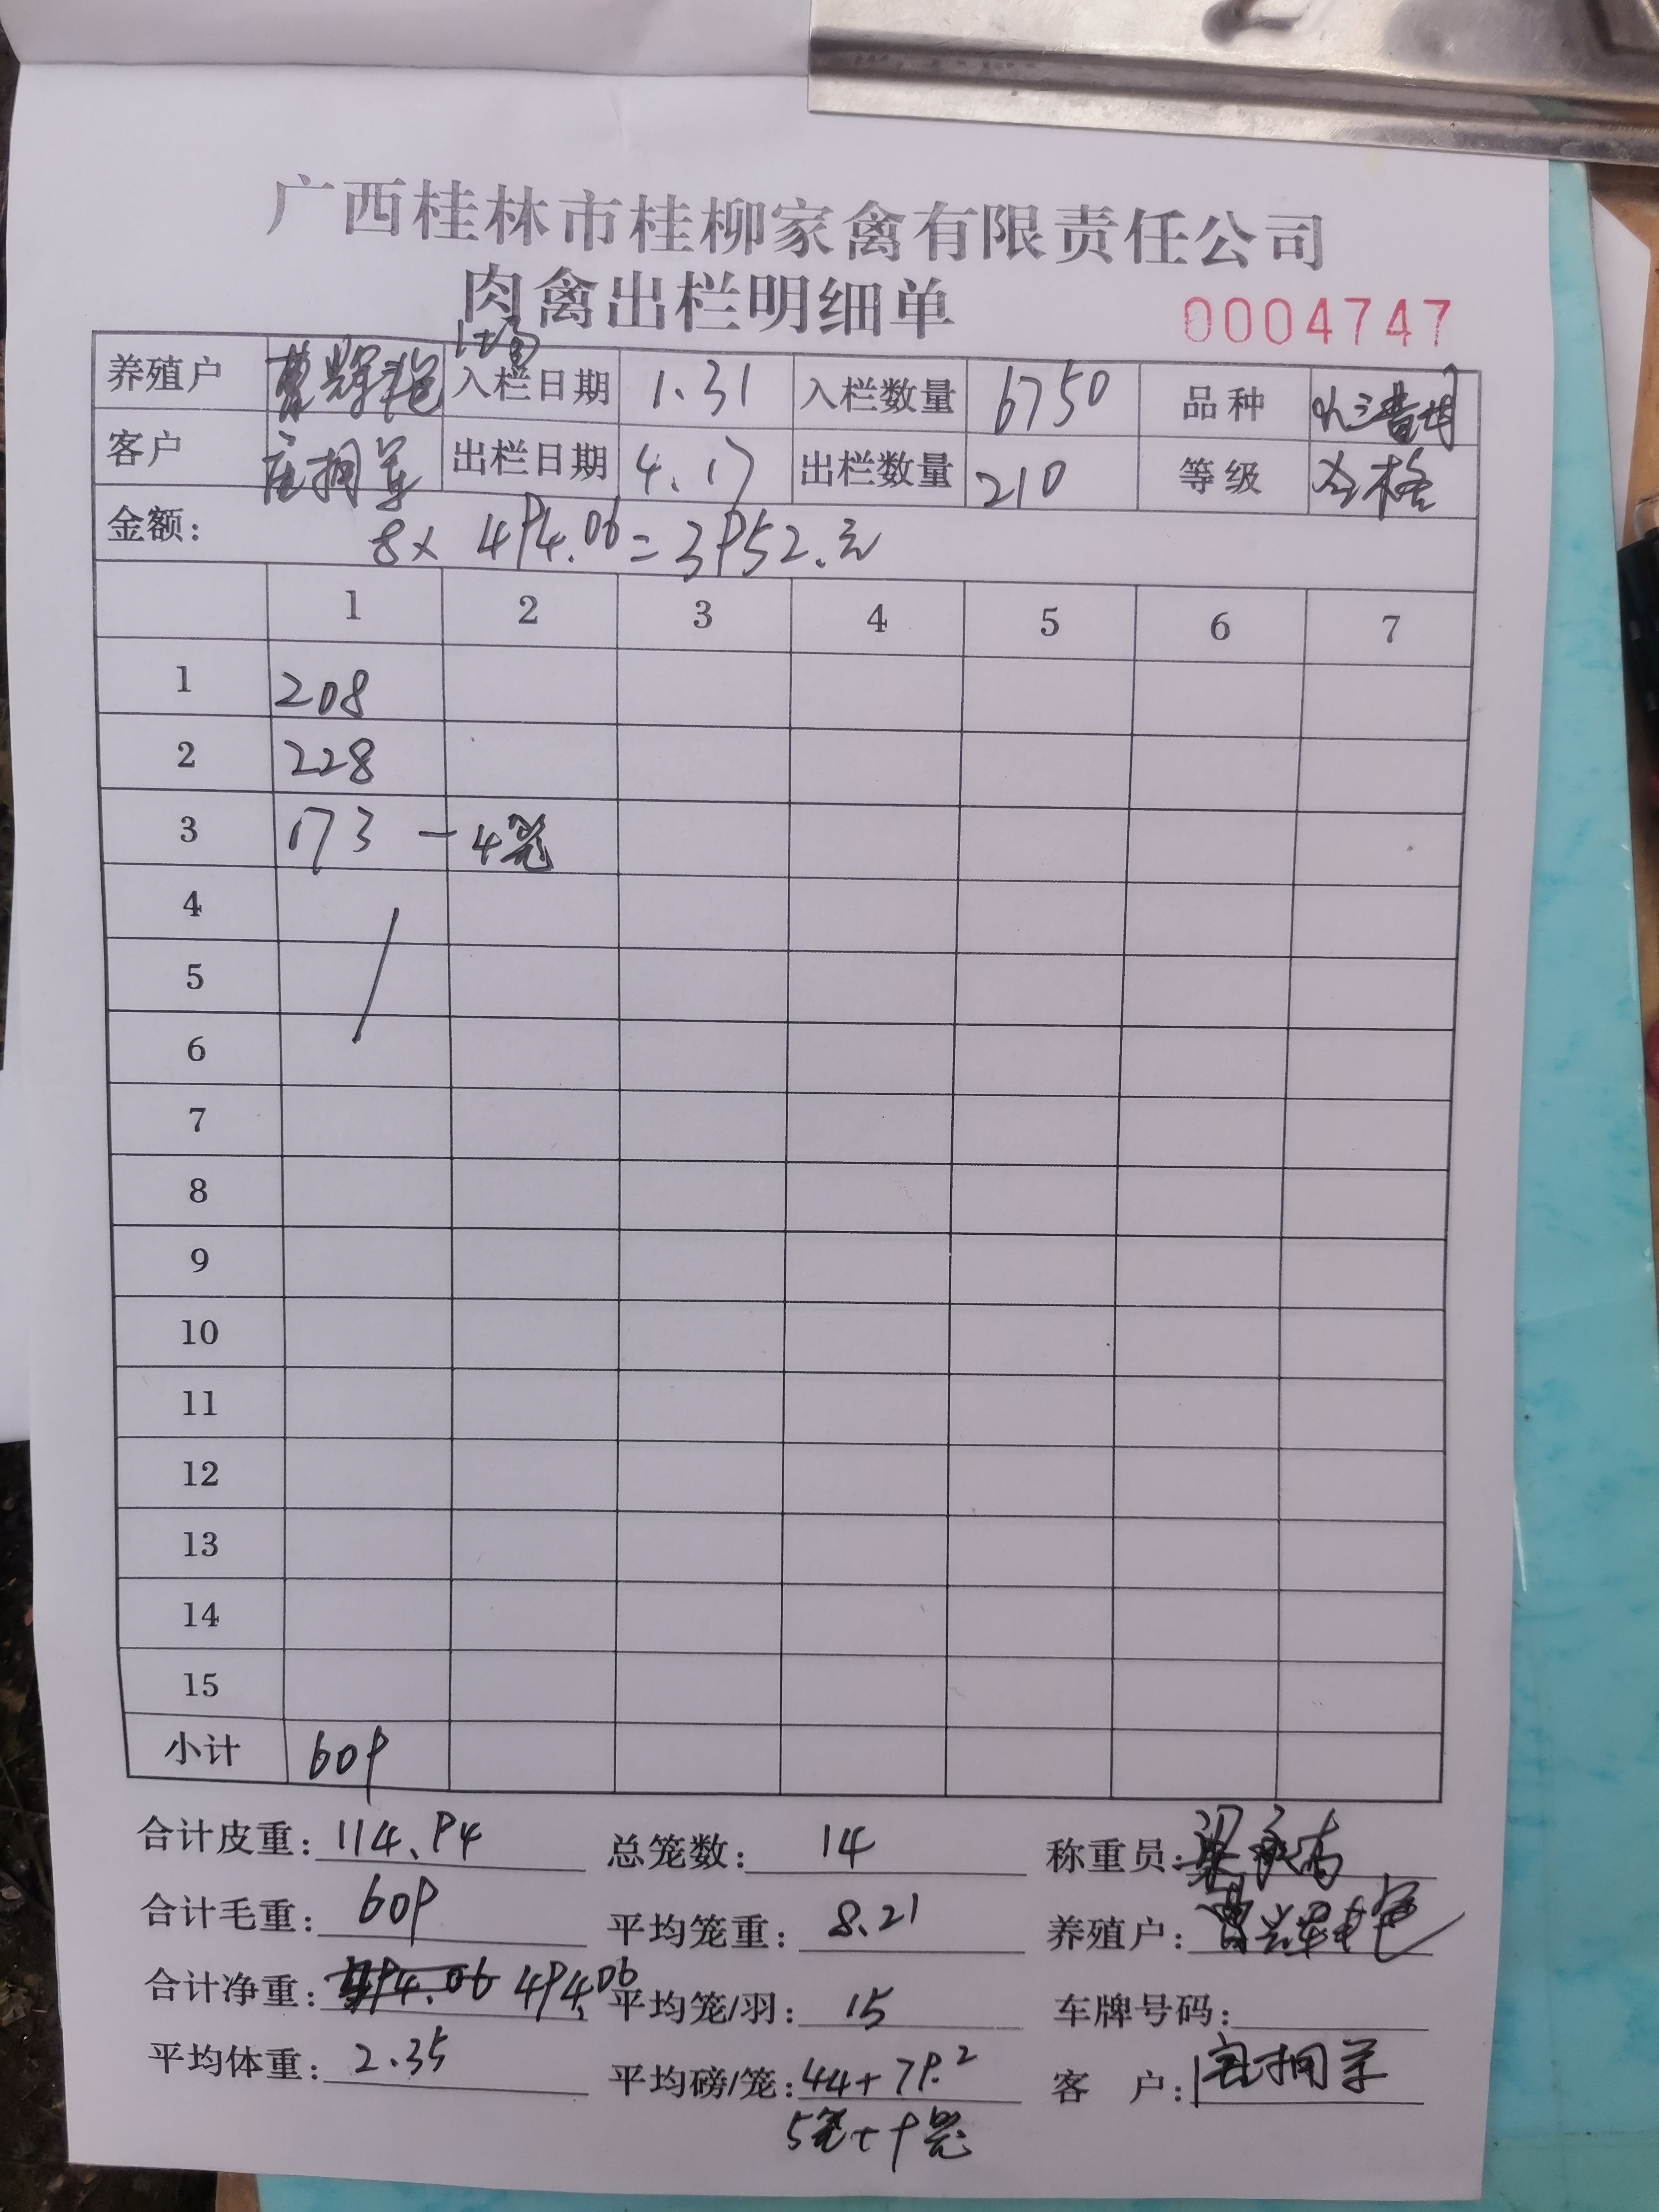 广西桂林市桂柳家禽有限责任公司
肉禽出栏明细单 0004747
养殖户 曹辉艳 入栏日期 1.31 入栏数量 6750 品种
客户 入栏日期 出栏日期 4.17 出栏数量 210 等级 合格
金额: 8× 494.06=3952.元
1 2 3 4 5 6 7
1 208
2 228
3 173 -4笼
4
5
6
7
8
9
10
11
12
13
14
15
小计 609
合计皮重: 114.94 总笼数: 14 称重员:
合计毛重: 609 平均笼重: 8.21 养殖户: 曹辉艳
合计净重: 494.06 494.06 平均笼/羽: 15 车牌号码:
平均体重: 2.35 平均磅/笼: 44+79.2 客 户:
5笼+9笼